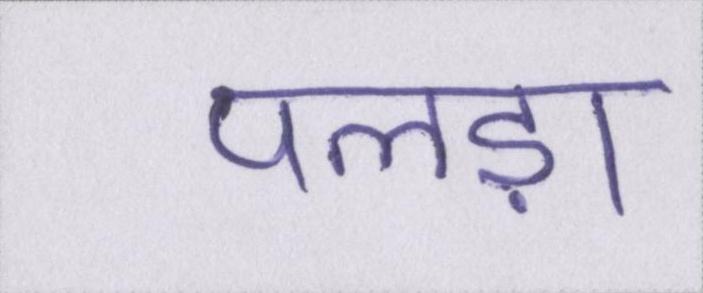 पलड़ा